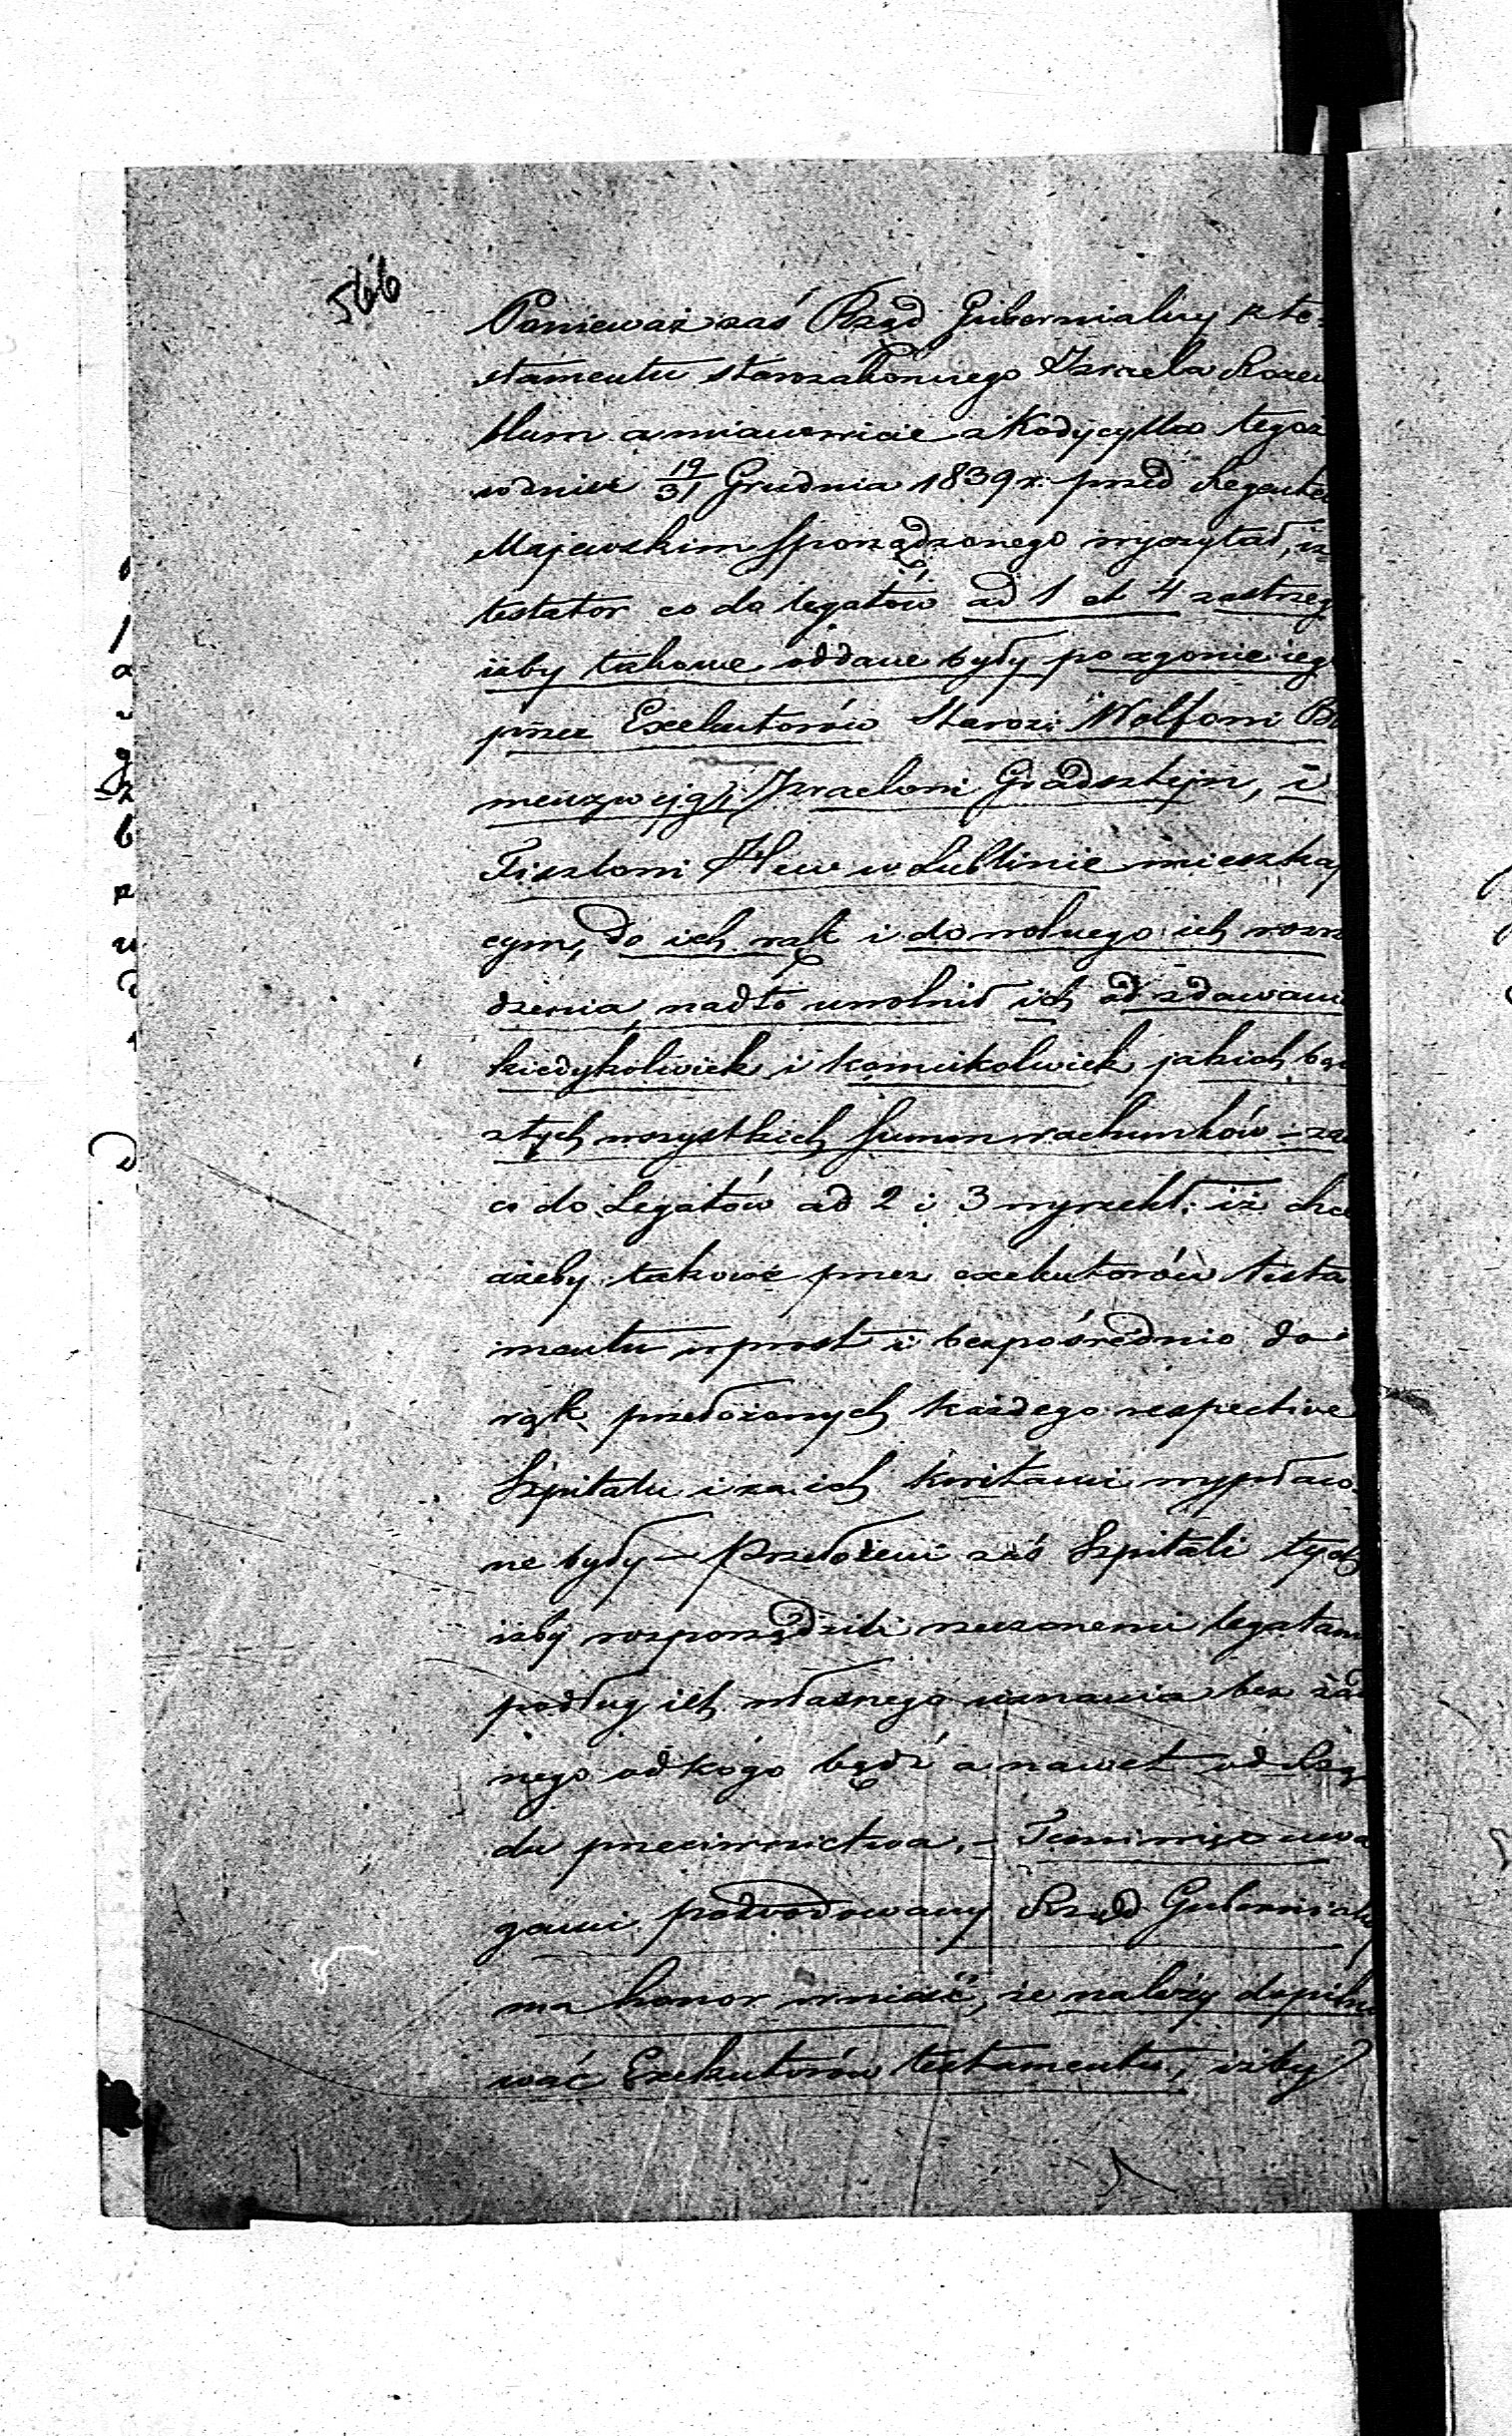 566
Ponieważ zaś Rząd Gubernialny z te-
stamentu starozakonnego Izraela Rozen
blum a mianowicie z Kodycyllu tegoż
w dniu 19/31 Grudnia 1839 r. przed Regente
Majewskim sporządzonego wyczytał, iż
testator co do legatów ad 1 et 4 zastrzeg
iżby takowe oddane były po zgonie ieg
przez Exekutorów Staroz: Wolfowi Bl
menzwejg, Izraelowi Gradsztejn, i
Fiszlowi w Lublinie mieszkaj
cym, do ich rąk i dowolnego ich rozrz
dzenia, nadto uwolnił ich od zdawani
kiedykolwiek i komukolwiek jakich bąd
z tych wszystkich summ rachunków – za
co do Legatów ad 2 i 3 wyrzekł: iż chce
ażeby takowe przez exekutorów testa
mentu wprost i bezpośrednio do
rąk przełożonych każdego respective
Szpitalu i za ich kwitami wypłaco-
ne były – Przełożeni zaś Szpitali tych
iżby rozporządzili rzeczonemi legatam
podług ich własnego uznania bez żad
nego od kogo bądź a nawet od Rzą
du przeciwnictwa. – Temi więc uwa
gami powodowany Rząd Gubernialny
ma honor wnieść, że należy dopilno
wać Exekutorów testamentu, iżby